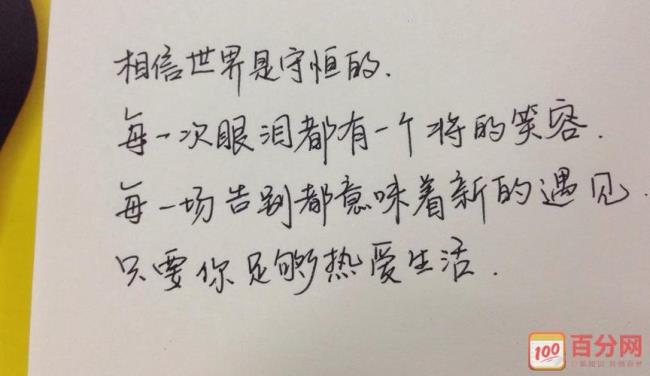 相信世界是守恒的.
每一次眼泪都有一个将的笑容.
每一场告别都意味着新的遇见.
只要你足够热爱生活.
100
百分网